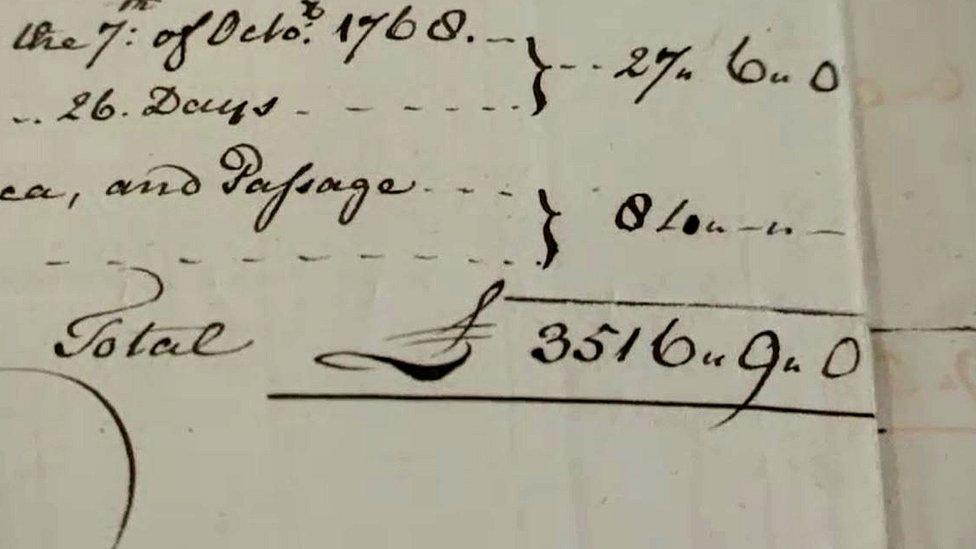 the 7.th of Octo.r 1768. -- } -- 27" 6" 0
.. 26. Days - - - - - -
ea, and Passage - - - } 810" - " -
- - - - - - - - - -
Total £ 3516" 9" 0